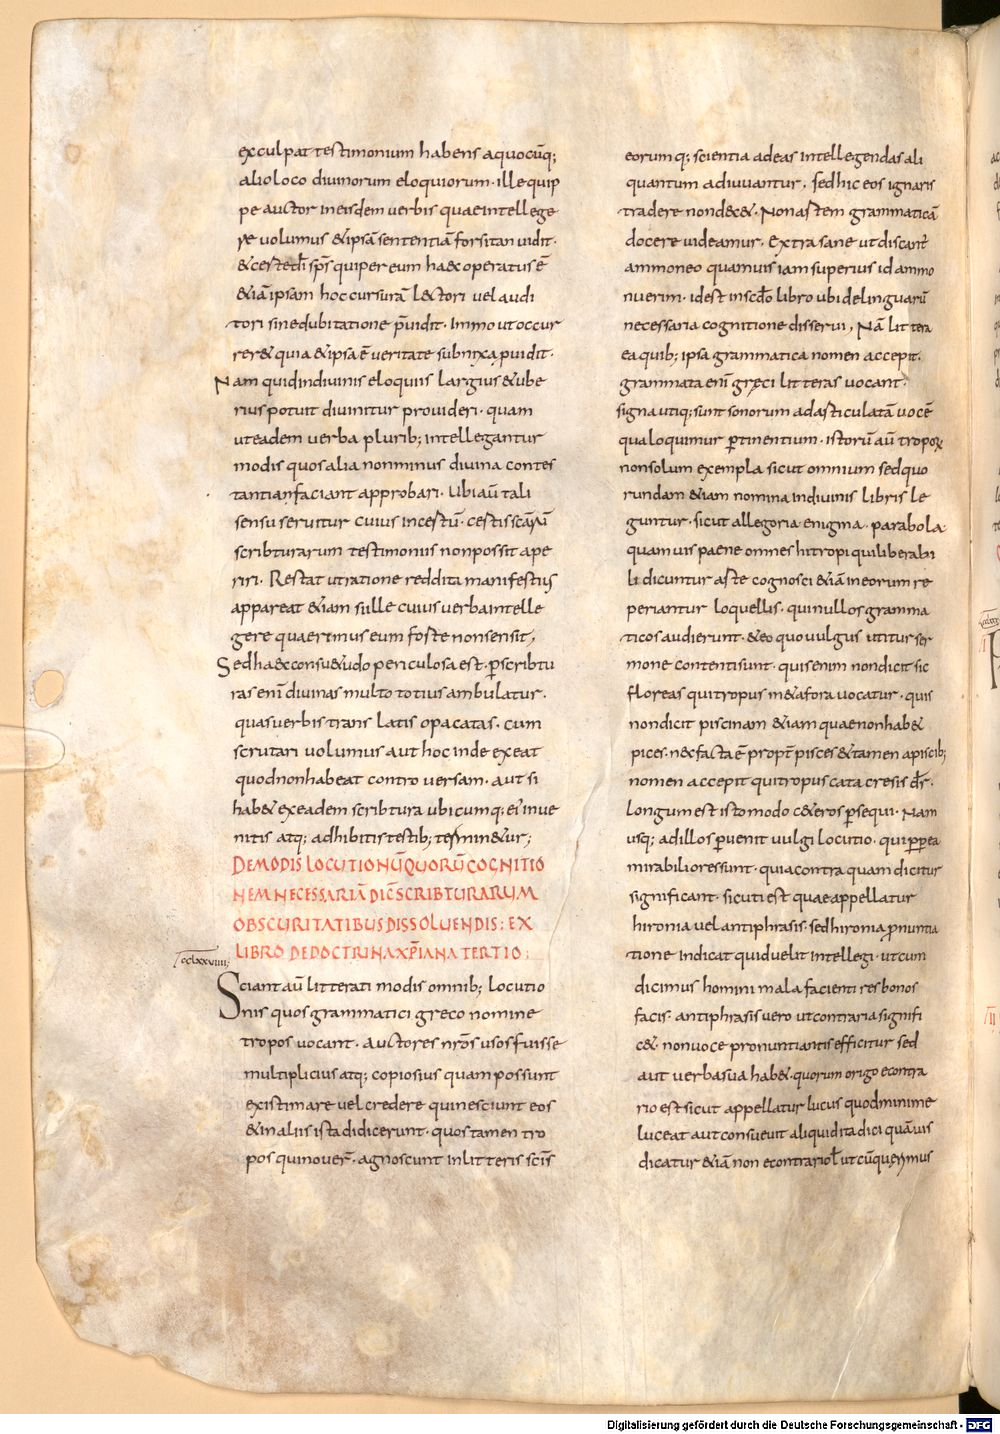 exculpat testimonium habens aquocūq;
alioloco diuinorum eloquiorum · ille quip
pe auctor ineisdem uerbis quaeintellege
re uolumus &ipsā sententiā forsitan uidit ·
&certe dī sp̄s quiper eum haec operatus ē
&iā ipsam hoccursurā lectori uel audi
tori sinedubitatione p̄uidit · Immo utoccur
rer& quia &ipsa ē ueritate subnixa puidit ·
Nam quidindiuinis eloquiis largius &ube
rius potuit diuinitur prouideri · quam
uteadem uerba plurib; intellegantur
modis quos alia nonminus diuina contes
tantianfaciant approbari · Ubiaū tali
sensu seruitur cuius incestū · cestis scārū
scribturarum testimoniis nonpossit ape
riri · Restat utratione reddita manifestus
appareat &iam siille cuius uerbaintelle
gere quaerimus eum forte nonsensit,
Sedhaec consu&udo periculosa est · p̄scribtu
ras enī diuinas multo totius ambulatur ·
quasuerbis trans latis opacatas · cum
scrutari uolumus aut hoc inde exeat
quodnonhabeat contro uersam · aut si
hab& exeadem scribtura ubicumq; ei inue
nitis atq; adhibitis testib; termin&ur;
DEMODIS LOCUTIONŪ QUORŪ COGNITIO
NEM NECESSARIĀ DIC̄ SCRIBTURARUM
OBSCURITATIBUS DISSOLUENDIS : EX
LIBRO DE DOCTRINA XP̄IANA TERTIO :
cclxxuiiii
Sciant aū litterati modis omnib; locutio
nis quos grammatici greco nomine
tropos uocant · auctores nr̄os usos fuisse
multiplicius atq; copiosius quam possunt
existimare uel credere quinesciunt eos
&inaliis ista didicerunt · quos tamen tro
pos quinouer̄ · agnoscunt inlitteris scīs
eorumq; scientia adeas intellegendas ali
quantum adiuuantur · sedhic eos ignaris
tradere nondec& · Nonastem grammaticā
docere uideamur · Extra sane ut discant̄
ammoneo quamuis iam superius id ammo
nuerim · idest inscdō libro ubi delinguarū
necessaria cognitione disserui, Nā littera
ea quib; ipsa grammatica nomen accepit ·
grammata enī greci litteras uocant ·
signa utiq; sunt sonorum adasticulatā uocē
qua loquimur p̄tinentium · istorū aū tropoꝝ
nonsolum exempla sicut omnium sedquo
rundam &iam nomina indiuinis libris le
guntur · sicut allegoria · enigma · parabola ·
quamuis paene omnes hitropi quiliberabi
li dicuntur aste cognosci &iā ineorum re
periantur loquellis · quinullos gramma
ticos audierunt · &eo quo uulgus utitur ser
mone contentisunt · quisenim nondicit sic
floreas quitropus m&afora uocatur · quis
nondicit piscinam &iam quaenonhab&
pices · nec facta ē propt̄ pisces &tamen apiscib;
nomen accepit quitropus cata cresis dr̄ ·
Longum est istomodo c&eros p̄sequi · Nam
usq; adillos p̄uenit uulgi locutio · quipp̄ea
mirabiliores sunt · quia contra quam dicitur
significant · sicuti est quaeappellatur
hironia uel antiphrasis · sedhironia p̄nuntia
tione indicat quid uelit intellegi · utcum
dicimus homini mala facienti res bonos
facis · antiphrasis uero utcontraria signifi
c& · nonuoce pronuntiantis efficitur sed
aut uerbasua hab& · quorum origo econtra
rio est sicut appellatur lucus quodminime
luceat aut consueuit aliquid ita dici quāuis
dicatur &iā non econtrario ł utcūquerimus
Digitalisierung gefördert durch die Deutsche Forschungsgemeinschaft - DFG